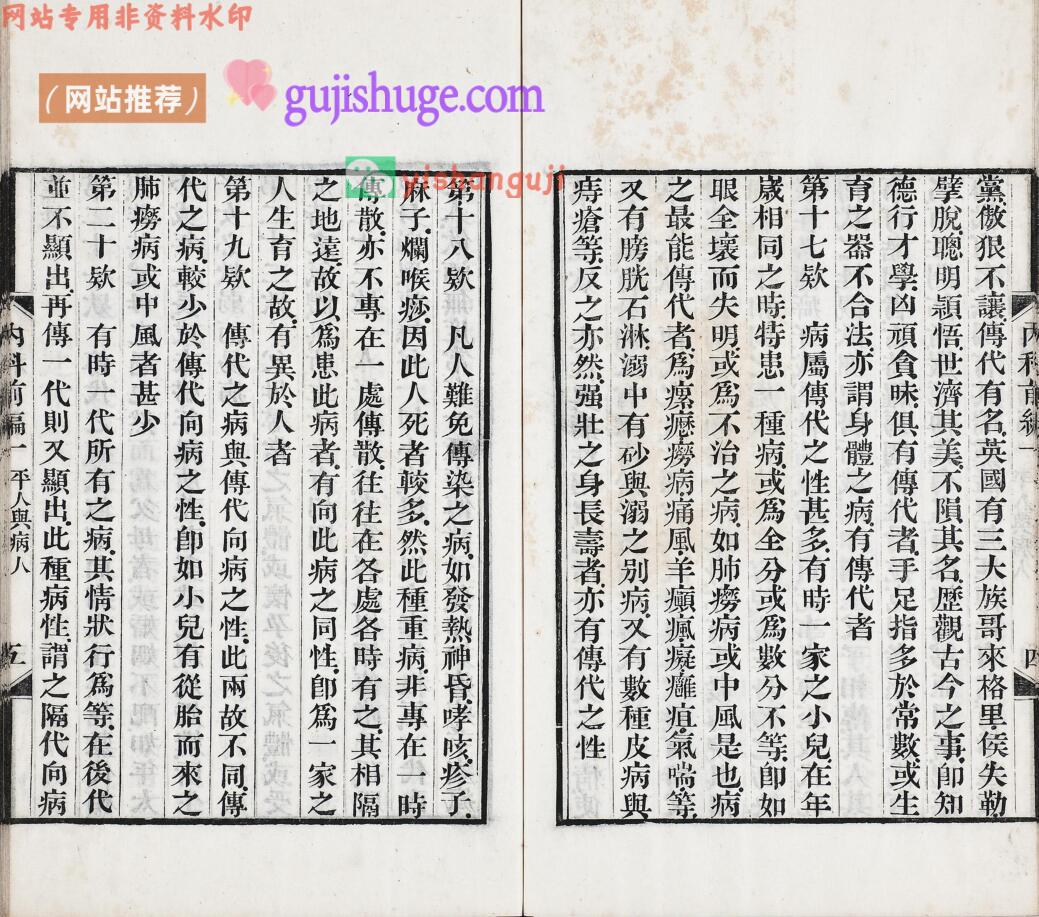 网站专用非资料水印
（网站推荐）
gujishuge.com
yishanguji
黨傲狠不讓傳代有名英國有三大族哥來格里侯失勒
擘脫聰明頴悟世濟其美不隕其名歷觀古今之事卽知
德行才學凶頑貪昧俱有傳代者手足指多於常數或生
育之器不合法亦謂身體之病有傳代者
第十七欵　病屬傳代之性甚多有時一家之小兒在年
歲相同之時特患一種病或爲全分或爲數分不等卽如
眼全壞而失明或爲不治之病如肺癆病或中風是也病
之最能傳代者爲瘰癧癆病痛風羊癲瘋癡癰疽氣喘等
又有膀胱石淋溺中有砂與溺之別病又有數種皮病與
痔瘡等反之亦然强壯之身長壽者亦有傳代之性
內科前編一
四
第十八欵　凡人難免傳染之病如發熱神昏哮咳疹子
麻子爛喉痧因此人死者較多然此種重病非專在一時
傳散亦不專在一處傳散往往在各處各時有之其相隔
之地遠故以爲患此病者有向此病之同性卽爲一家之
人生育之故有異於人者
第十九欵　傳代之病與傳代向病之性此兩故不同傳
代之病較少於傳代向病之性卽如小兒有從胎而來之
肺癆病或中風者甚少
第二十欵　有時一代所有之病其情狀行爲等在後代
並不顯出再傳一代則又顯出此種病性謂之隔代向病
內科前編一　平人與病人
五